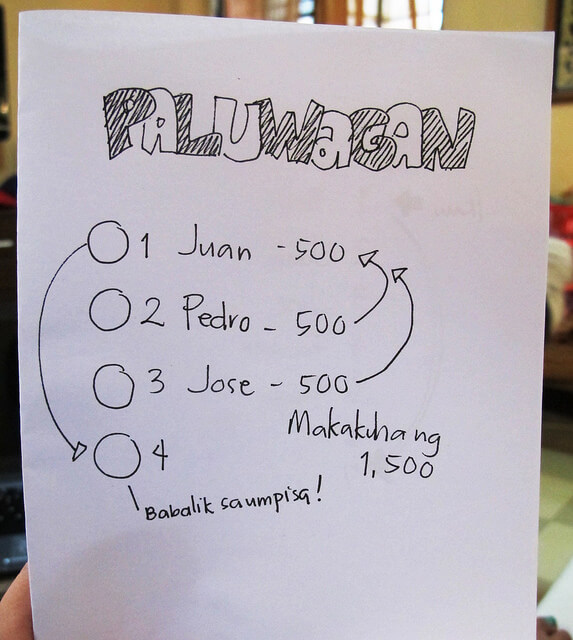 PALUWAGAN
1 Juan - 500
2 Pedro - 500
3 Jose - 500
Makakuha ng
1,500
4
Babalik sa umpisa!